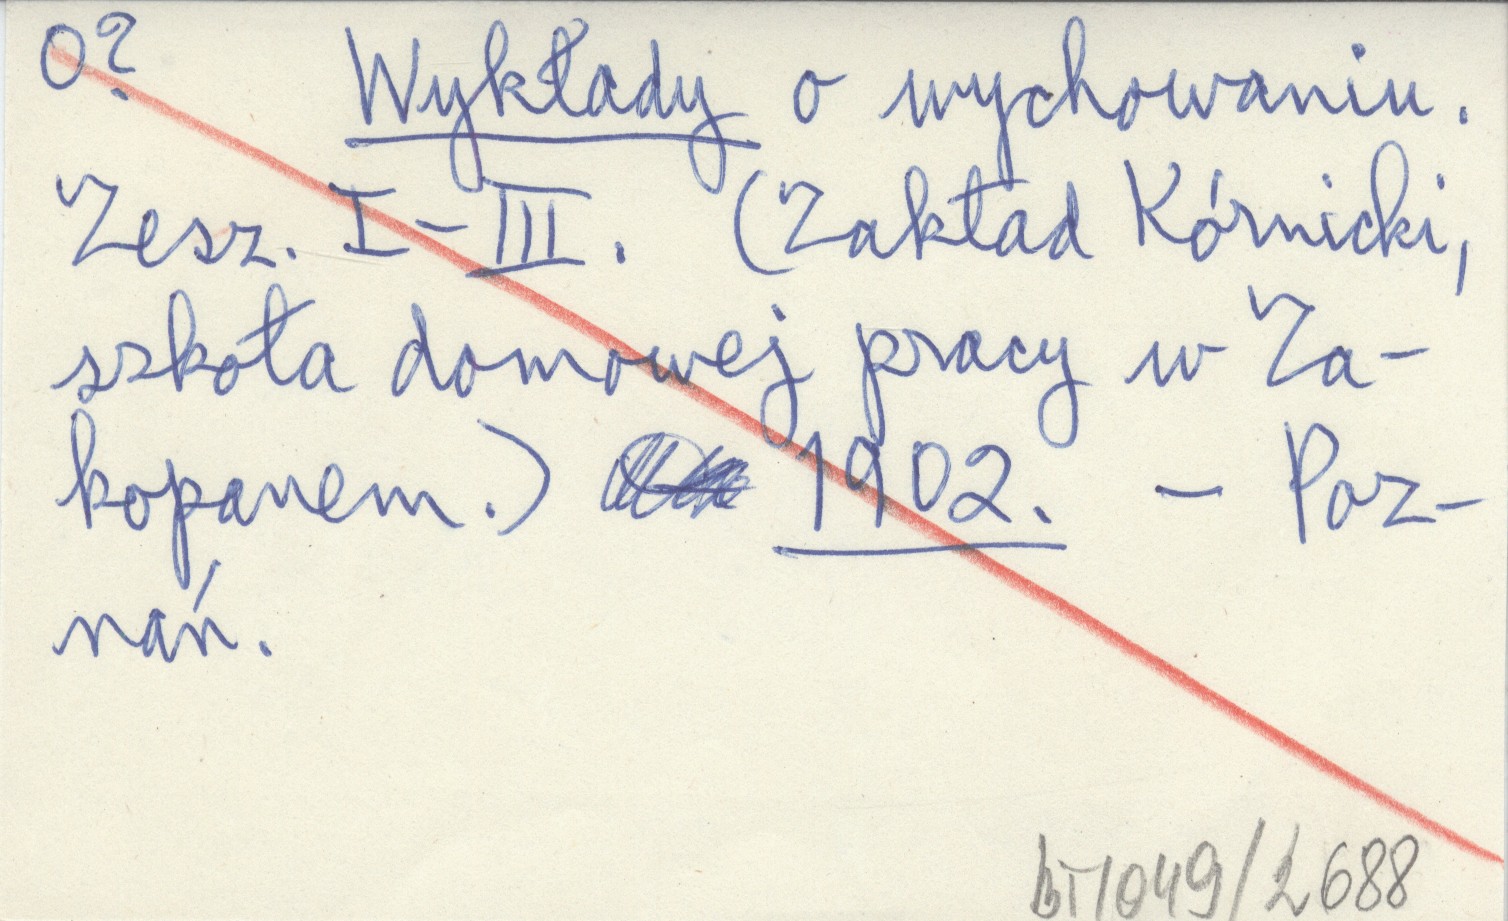 O? Wykłady o wychowaniu.
Zesz. I-III. (Zakład Kórnicki,
szkoła domowej pracy w Za-
kopanem.) 1902. - Poz-
nań.
049/2688